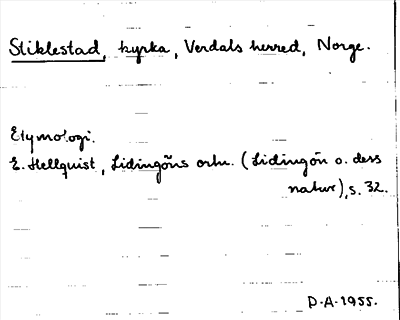 Stiklestad, kyrka, Verdals herred, Norge.
Etymologi.
E. Hellquist, Lidingöns ortn. (Lidingön o. dess
natur), s. 32.
D.A. 1955.